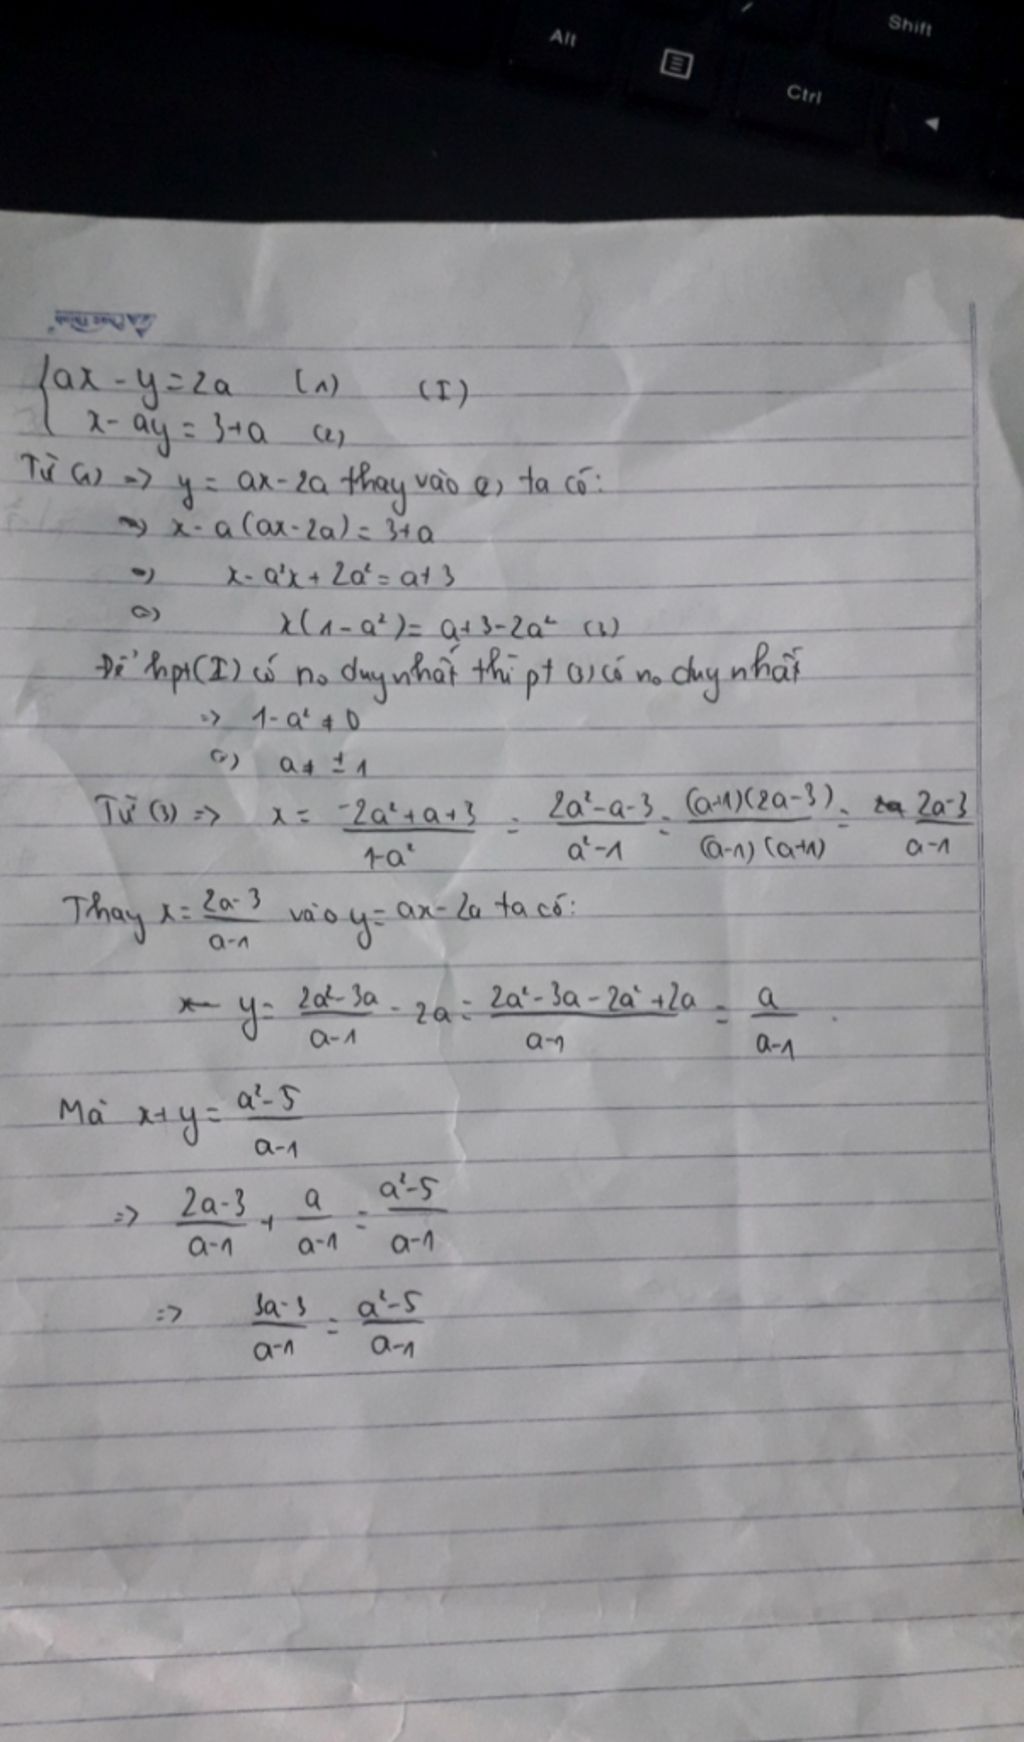 Shift
Alt
Ctrl
ax - y = 2a (1) (I)
x - ay = 3+a (2)
Từ (1) => y = ax - 2a thay vào (2) ta có:
=> x - a(ax - 2a) = 3+a
=> x - a²x + 2a² = a+3
<=> x(1 - a²) = a+3-2a² (3)
Để hpt(I) có n₀ duy nhất thì pt (3) có n₀ duy nhất
=> 1 - a² ≠ 0
<=> a ≠ ±1
Từ (3) => x = (-2a²+a+3)/(1-a²) = (2a²-a-3)/(a²-1) = (a+1)(2a-3)/(a-1)(a+1) = (2a-3)/(a-1)
Thay x = (2a-3)/(a-1) vào y = ax - 2a ta có:
y = (2a²-3a)/(a-1) - 2a = (2a²-3a-2a²+2a)/(a-1) = a/(a-1)
Mà x+y = (a²-5)/(a-1)
=> (2a-3)/(a-1) + a/(a-1) = (a²-5)/(a-1)
=> (3a-3)/(a-1) = (a²-5)/(a-1)